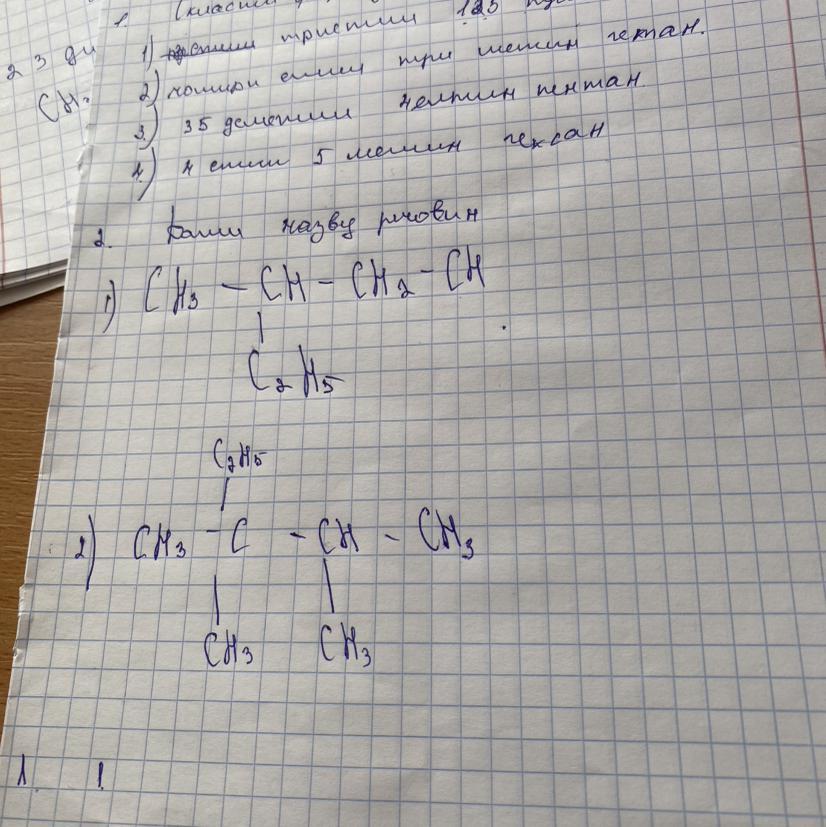 2 3 ди
CH₃
1 Скласти
1) тристин 123
2) чотири етин три метин гектан.
3) 35 деметин чептин пентан
4) 4 етин 5 метин гексан
2. Дати назву речовин
1) CH₃ - CH - CH₂ - CH
|
C₂H₅
C₂H₅
|
2) CH₃ - C - CH - CH₃
| |
CH₃ CH₃
1. 1.